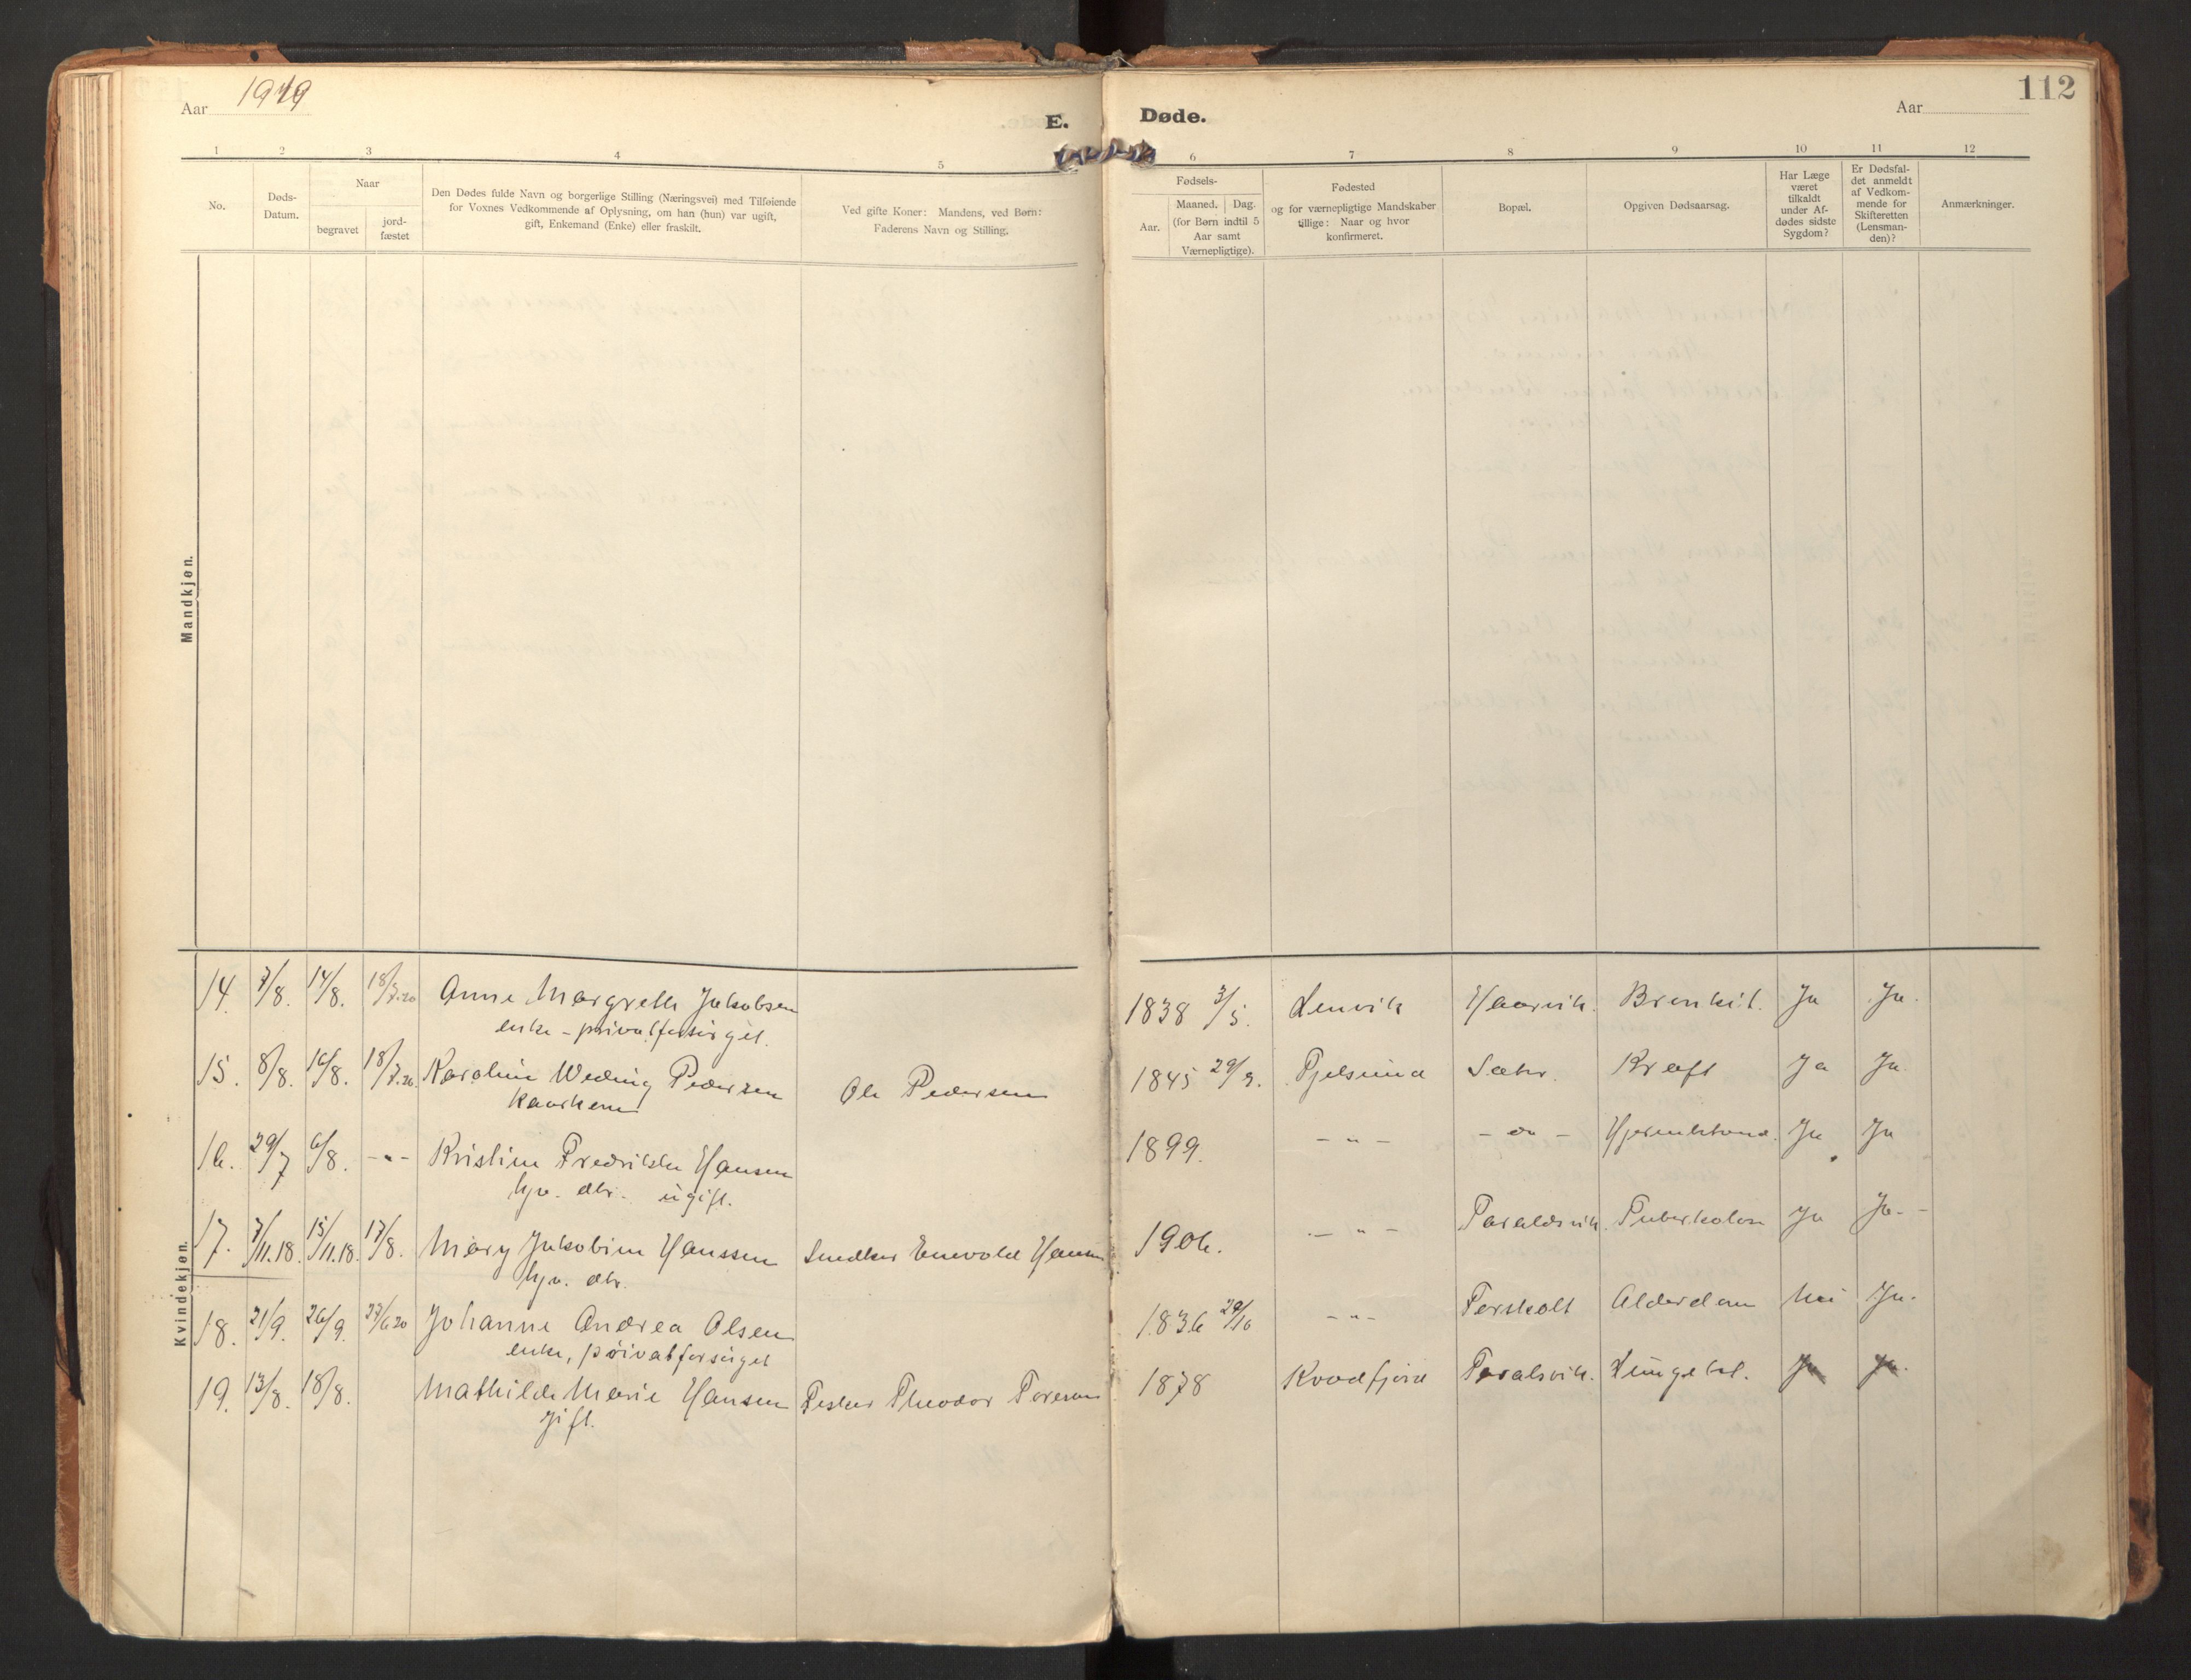 Aar 1919
E.
Døde.
Aar
112
1 2 3 4 5 6 7 8 9 10 11 12
No.
Døds-
Datum.
Naar
begravet
jord-
fæstet
Den Dødes fulde Navn og borgerlige Stilling (Næringsvei) med Tilføiende
for Voxnes Vedkommende af Oplysning, om han (hun) var ugift,
gift, Enkemand (Enke) eller fraskilt.
Ved gifte Koner: Mandens, ved Børn:
Faderens Navn og Stilling.
Fødsels-
Aar.
Maaned. Dag.
(for Børn indtil 5
Aar samt
Værnepligtige).
Fødested
og for værnepligtige Mandskaber
tillige: Naar og hvor
konfirmeret.
Bopæl.
Opgiven Dødsaarsag.
Har Læge
været
tilkaldt
under Af-
dødes sidste
Sygdom?
Er Dødsfal-
det anmeldt
af Vedkom-
mende for
Skifteretten
(Lensman-
den)?
Anmærkninger.
Mandkjøn.
Kvindekjøn.
14. 7/8. 14/8. 18/7.20 Anne Margrethe Jakobsen 1838 3/5. Lenvik Haarvik. Bronkit. Ja Ja.
enke - privatforsørget.
15. 8/8. 16/8. 18/7.20 Karoline Weding Pedersen Ole Pedersen 1845 29/9. Tjelsund Sæter. Kræft Ja Ja
Kaarkone
16. 29/7 6/8. -"- Kristine Fredrikke Hansen 1899. -"- -do- Ja Ja
hjv. dtr. ugift.
17. 7/11.18. 15/11.18. 17/8. Mary Jakobine Hanssen Snedker Enevold Hansen 1906. -"- Taraldsvik. Tuberkolose Ja Ja.
hjv. dtr.
18. 21/9. 26/9. 27/6.20 Johanne Andrea Olsen 1836 29/10 -"- Forskolt Alderdom Nei Ja.
enke, privatforsørget
19. 13/8. 18/8. Mathilde Marie Hansen Fisker Theodor Toresen 1878 Kvædfjord Taralsvik. Lungebet. Ja Ja.
gift.